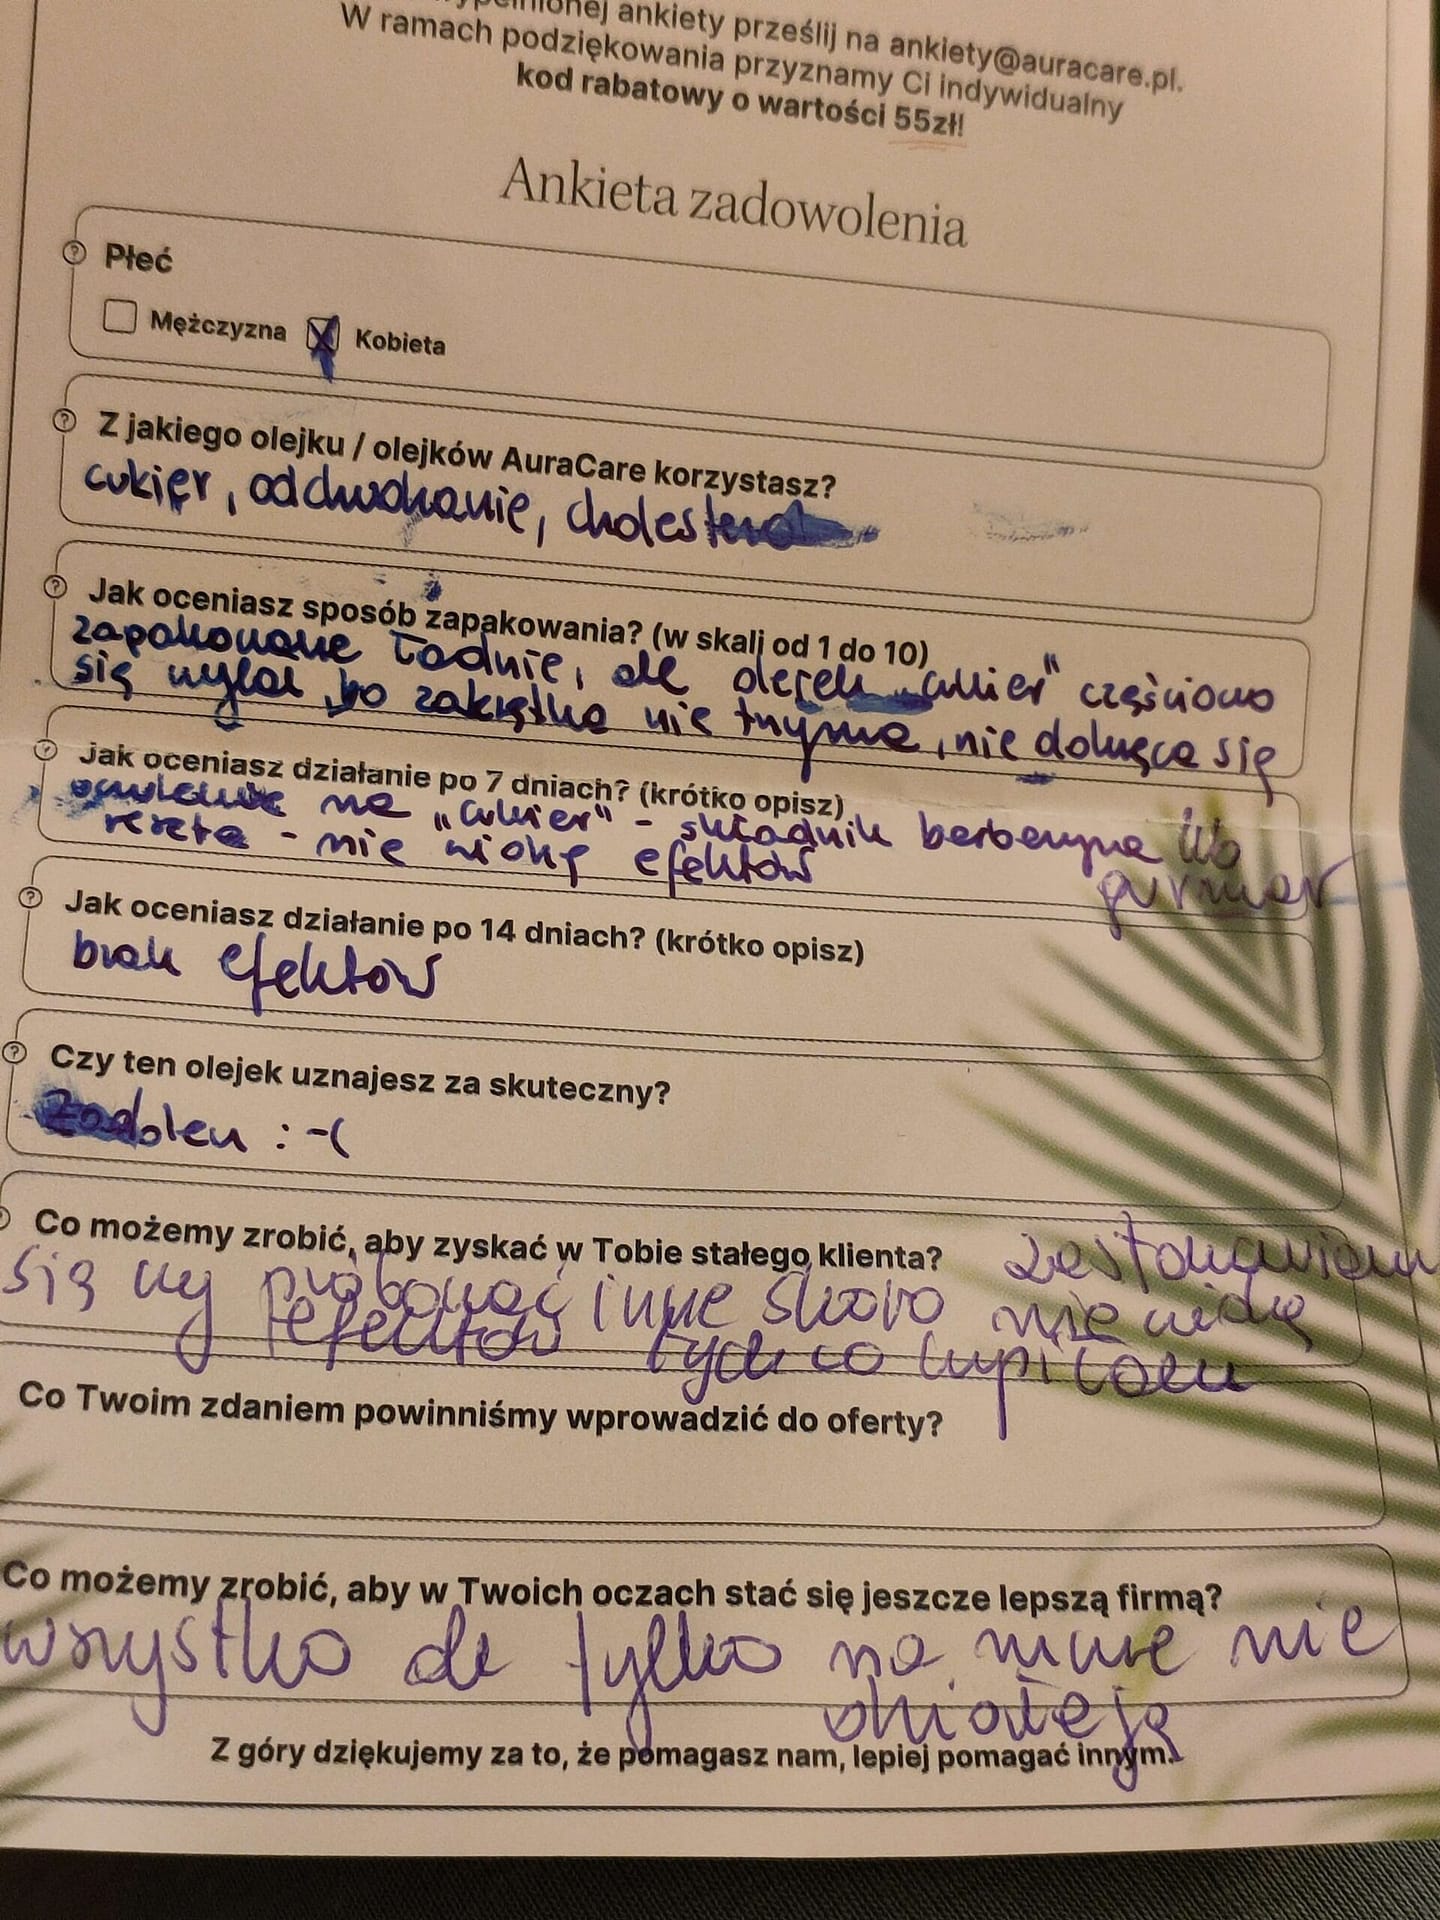 ankiety prześlij na ankiety@auracare.pl.
W ramach podziękowania przyznamy Ci indywidualny
kod rabatowy o wartości 55zł!
Ankieta zadowolenia
Płeć
Mężczyzna Kobieta
Z jakiego olejku / olejków AuraCare korzystasz?
cukier, odchudzanie, cholesterol
Jak oceniasz sposób zapakowania? (w skali od 1 do 10)
zapakowane ładnie, ale olejek „cukier" częściowo
się wylał bo zakrętka nie trzyma, nie dokręca się
Jak oceniasz działanie po 7 dniach? (krótko opisz)
na „cukier" - składnik berberyna lub
gurmar
reszta - nie widzę efektów
Jak oceniasz działanie po 14 dniach? (krótko opisz)
brak efektów
Czy ten olejek uznajesz za skuteczny?
Żadolen :-(
Co możemy zrobić, aby zyskać w Tobie stałego klienta?
zastanawiam
się czy próbować inne skoro nie widzę
efektów tych co kupiłam
Co Twoim zdaniem powinniśmy wprowadzić do oferty?
Co możemy zrobić, aby w Twoich oczach stać się jeszcze lepszą firmą?
wszystko ok tylko na mnie nie
działają
Z góry dziękujemy za to, że pomagasz nam, lepiej pomagać innym.